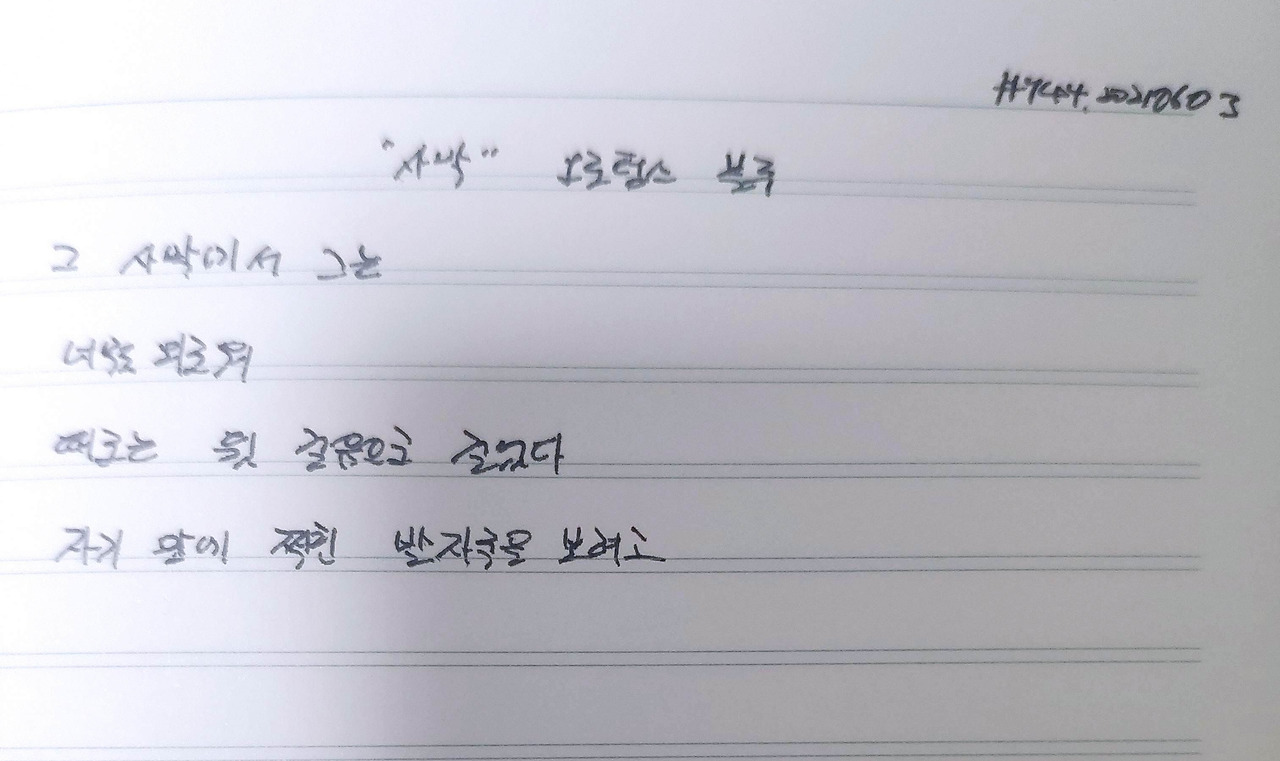 #744. 20210603
"사막" 오르텅스 블루
그 사막에서 그는
너무도 외로워
때로는 뒷 걸음으로 걸었다
자기 앞에 찍힌 발자국을 보려고